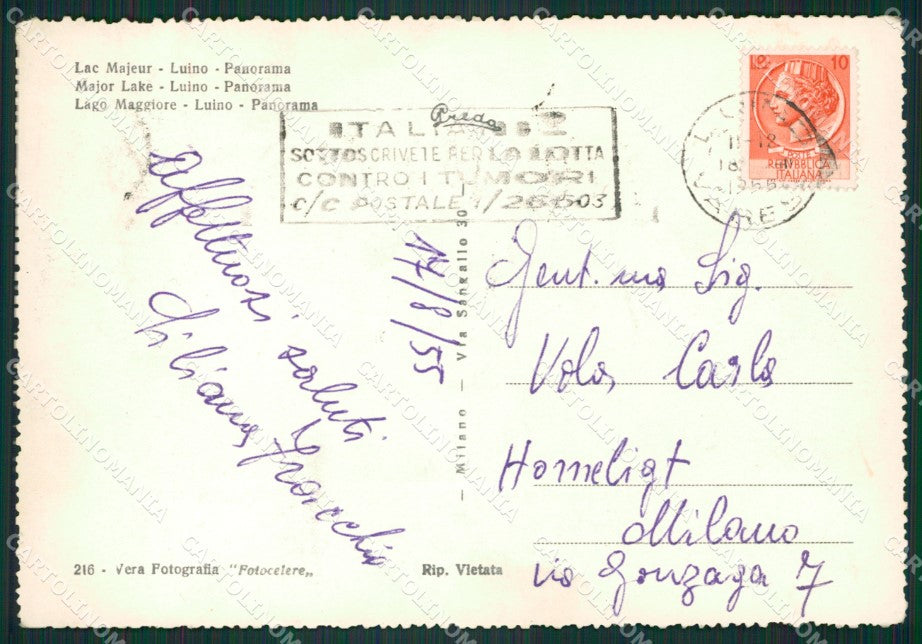 Lac Majeur - Luino - Panorama
Major Lake - Luino - Panorama
Lago Maggiore - Luino - Panorama
Preda
ITALIANI
SOTTOSCRIVETE PER LA LOTTA
CONTRO I TUMORI
C/C POSTALE
LUINO
11-12
18
1955
VARESE
L. 10
POSTE
REPUBBLICA
ITALIANA
Affettuosi saluti
Liliana
17/8/55
- Milano - Via Sangallo 30
Gent.mo Sig.
Vola Carlo
Homeligt
Milano
via Gonzaga 7
216 - Vera Fotografia "Fotocelere„
Rip. Vietata
CARTOLINOMANIA